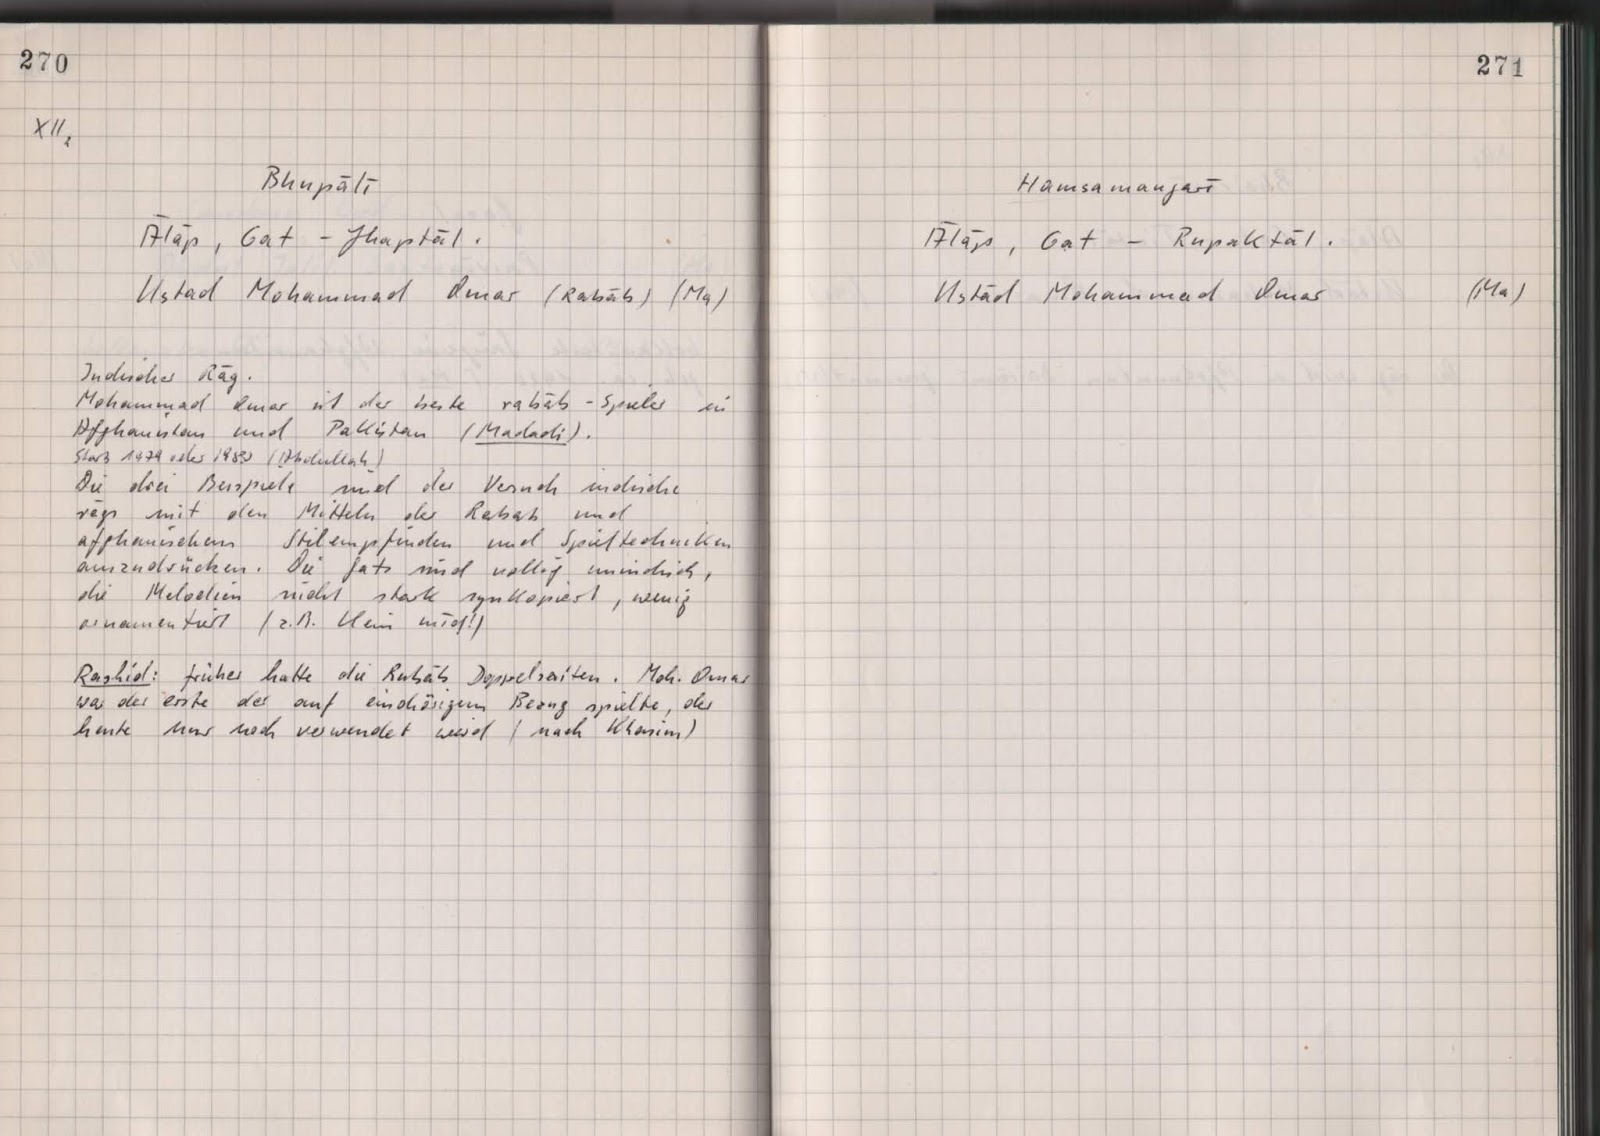 270
XII2
Bhupālī
Ālāp, Gat - Jhaptāl.
Ustad Mohammad Omar (Rabāb) (Ma)
Indischer Rāg.
Mohammad Omar ist der beste rabāb-Spieler in
Afghanistan und Pakistan (Madadi).
Starb 1979 oder (Abdullah)
Die drei Beispiele sind der Versuch indische
rāgs mit den Mitteln der Rabab und
afghanischem Stilempfinden und Spieltechniken
auszudrücken. Die gats sind völlig unindisch,
die Melodien nicht stark synkopiert, wenig
ornamentiert (z.B. kein mīḍ!)
Rashid: früher hatte die Rabāb Doppelsaiten. Moh. Omar
war der erste der auf einchörigem Bezug spielte, der
heute nur noch verwendet wird (nach Khasim)
271
Hamsamanjarī
Ālāp, Gat - Rupaktāl.
Ustād Mohammad Omar (Ma)